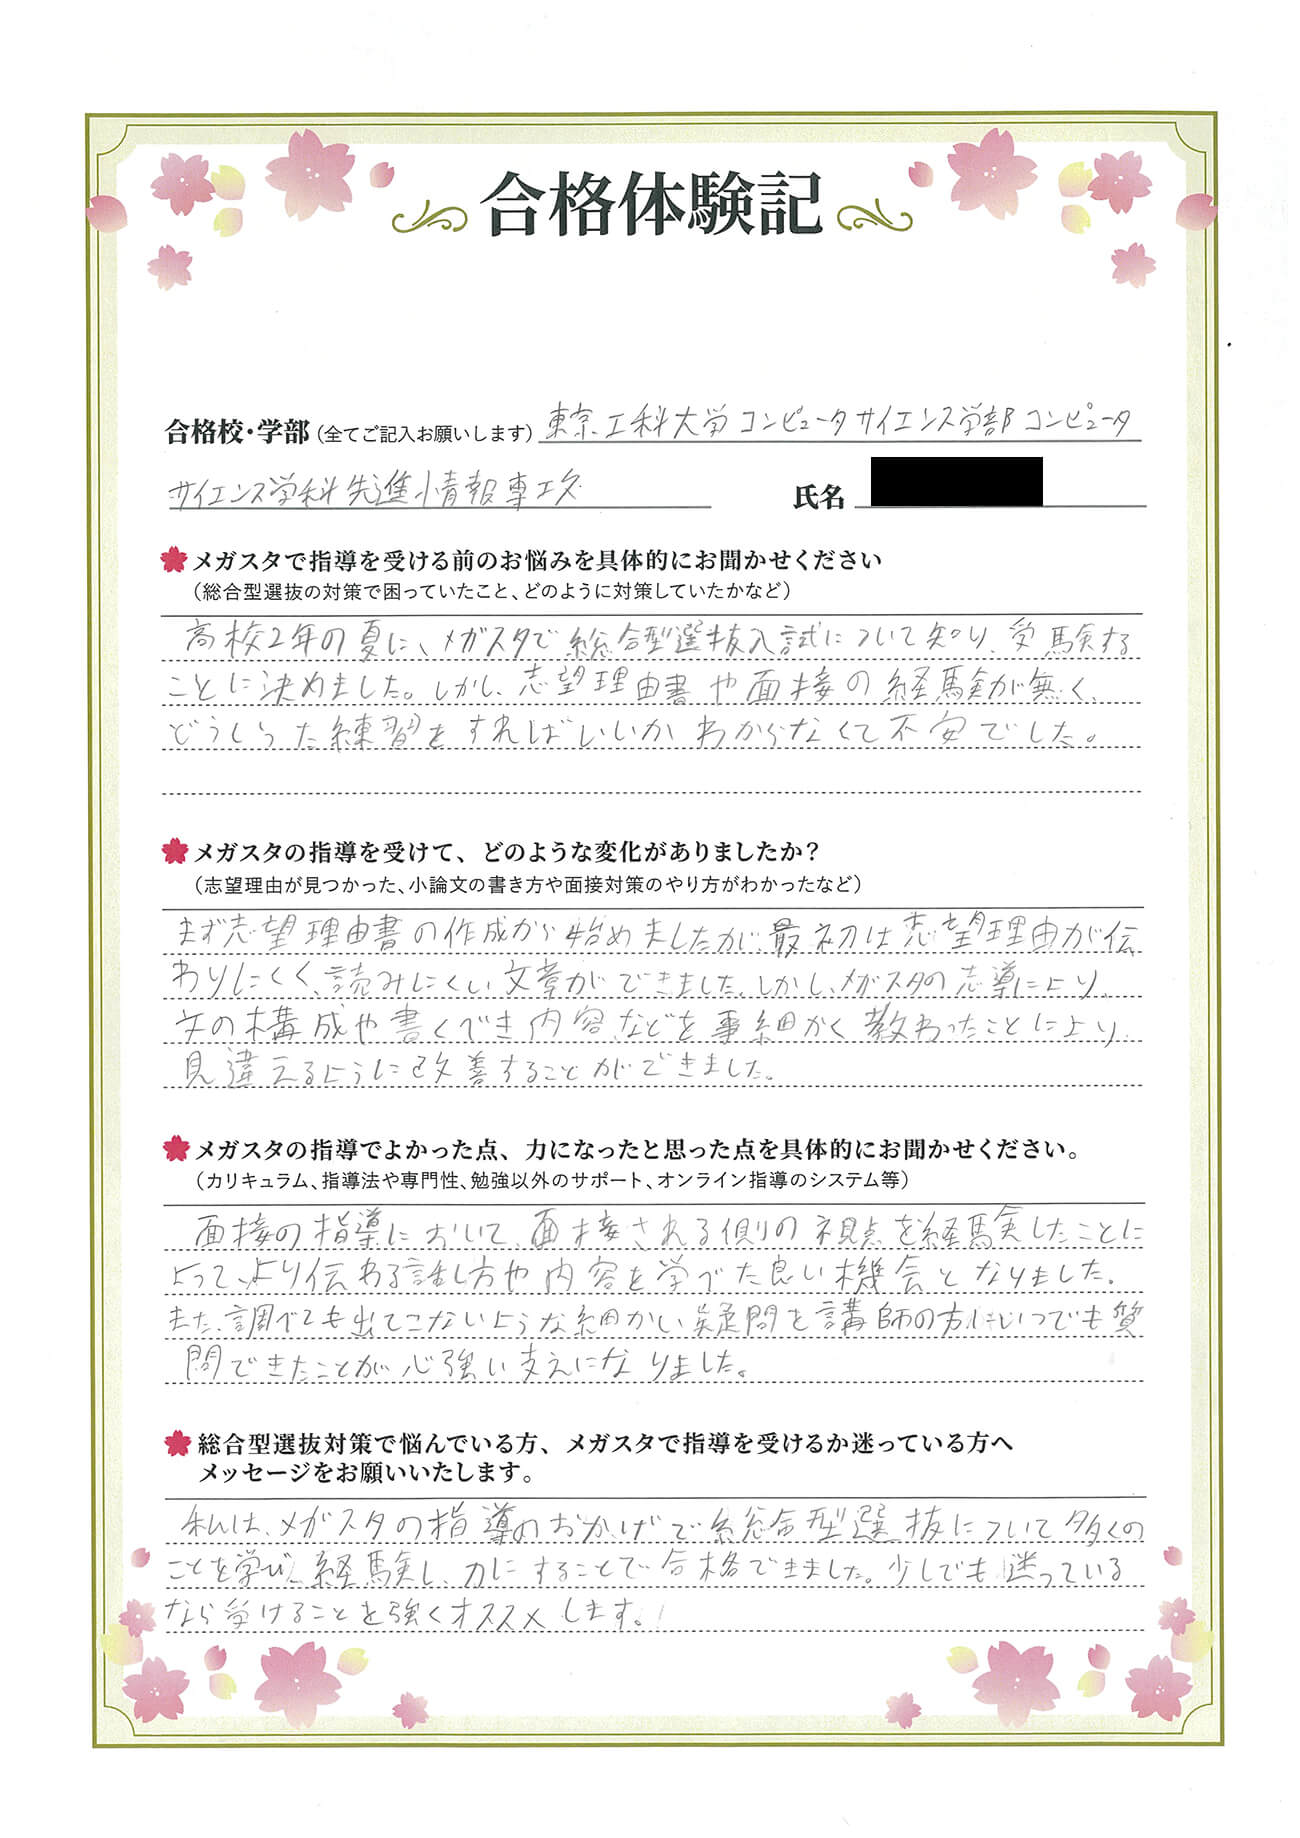 合格体験記
合格校・学部(全てご記入お願いします) 東京工科大学コンピュータサイエンス学部コンピュータ
サイエンス学科先進情報専攻 氏名
メガスタで指導を受ける前のお悩みを具体的にお聞かせください
(総合型選抜の対策で困っていたこと、どのように対策していたかなど)
高校2年の夏に、メガスタで総合型選抜入試について知り、受験する
ことに決めました。しかし、志望理由書や面接の経験が無く、
どうしらった練習をすればいいかわからなくて不安でした。
メガスタの指導を受けて、どのような変化がありましたか？
(志望理由が見つかった、小論文の書き方や面接対策のやり方がわかったなど)
まず志望理由書の作成から始めましたが、最初は志望理由が伝
わりにくく、読みにくい文章ができました。しかし、メガスタの志導により、
文の構成や書くべき内容などを事細かく教わったことにより、
見違えるように改善することができました。
メガスタの指導でよかった点、力になったと思った点を具体的にお聞かせください。
(カリキュラム、指導法や専門性、勉強以外のサポート、オンライン指導のシステム等)
面接の指導において、面接される側の視点を経験したことに
よって、より伝わる話し方や内容を学べた良い機会となりました。
また、調べても出てこないような細かい疑問を講師の方にいつでも質
問できたことが心強い支えになりました。
総合型選抜対策で悩んでいる方、メガスタで指導を受けるか迷っている方へ
メッセージをお願いいたします。
私は、メガスタの指導のおかげで総合型選抜について多くの
ことを学び、経験し、力にすることで合格できました。少しでも迷っている
なら受けることを強くオススメします。